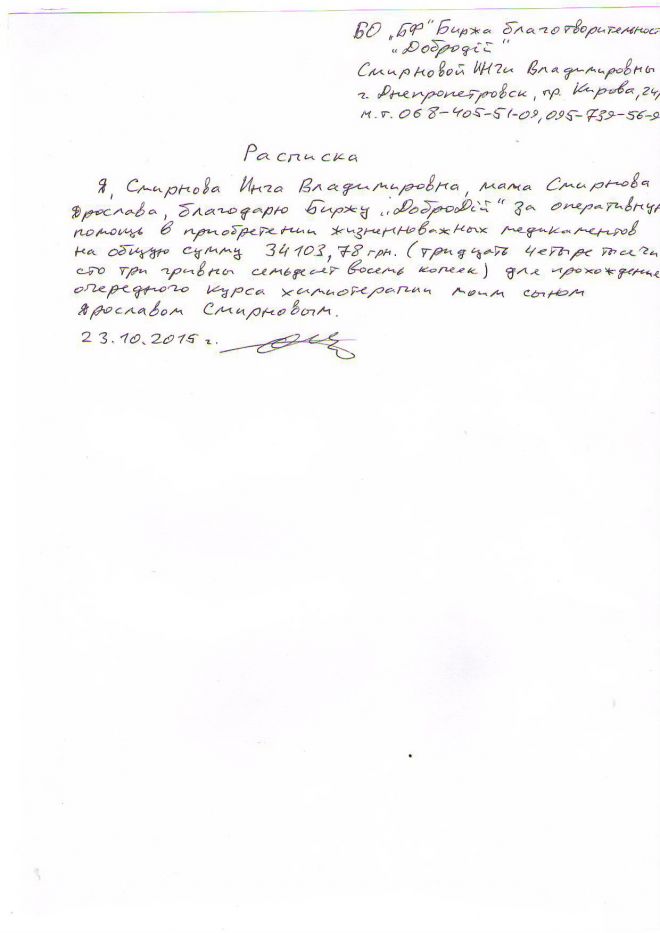 БО „БФ" Биржа благотворительност
„Добродій"
Смирновой Инги Владимировны
г. Днепропетровск, пр. Кирова, 24/
м.т. 068-405-51-09, 095-739-56-9
Расписка
Я, Смирнова Инга Владимировна, мама Смирнова
Ярослава, благодарю Биржу „Добродій" за оперативную
помощь в приобретении жизненноважных медикаментов
на общую сумму 34103,78 грн. (тридцать четыре тысячи
сто три гривны семьдесят восемь копеек) для прохождение
очередного курса химиотерапии моим сыном
Ярославом Смирновым.
23.10.2015 г.